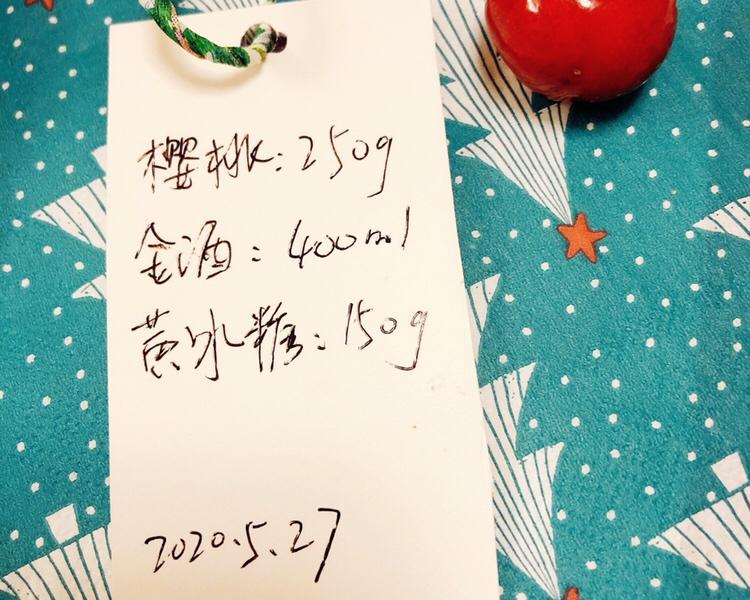 樱桃:250g
金酒:400ml
黄冰糖:150g
2020.5.27